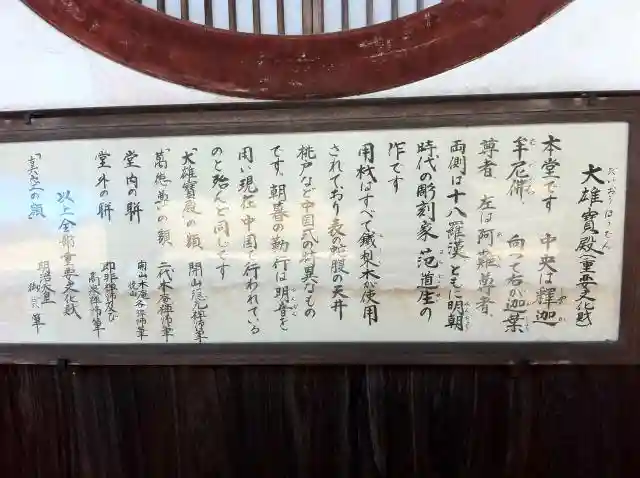 大雄寳殿(重要文化財)
だいおうほうでん
本堂です 中央は釋迦
牟尼佛、向って右が迦葉
尊者、左は阿難尊者、
両側は十八羅漢ともに明朝
時代の彫刻家 范道生の
作です
用材はすべて鐵梨木が使用
されており表の蛇腹の天井
桃戸など中国式の特異なもの
です。朝暮の勤行は明音を
用い現在中国で行われている
のと殆んど同じです
「大雄寳殿」の額 開山隠元禅師筆
「萬徳尊」の額 二代木庵禅師筆
堂内の聯
堂外の聯 即非禅師及び
高泉禅師筆
以上全部重要文化財
「真空」の額 明治天皇
御宸筆